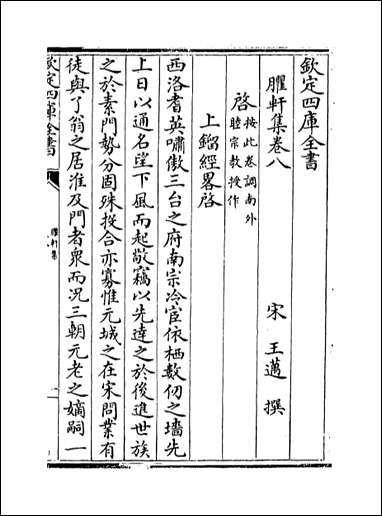 欽定四庫全書
臞軒集卷八
宋 王邁 撰
啓
按此卷調南外
睦宗教授作
上鎦經畧啓
西洛耆英嘯傲三台之府南宗冷宦依栖數仞之墻先
上日以通名望下風而起敬竊以先達之於後進世族
之於素門勢分固殊挻合亦寡惟元城之在宋問業有
徒與了翁之居淮及門者衆而況三朝元老之嫡嗣一
欽定四庫全書
臞軒集